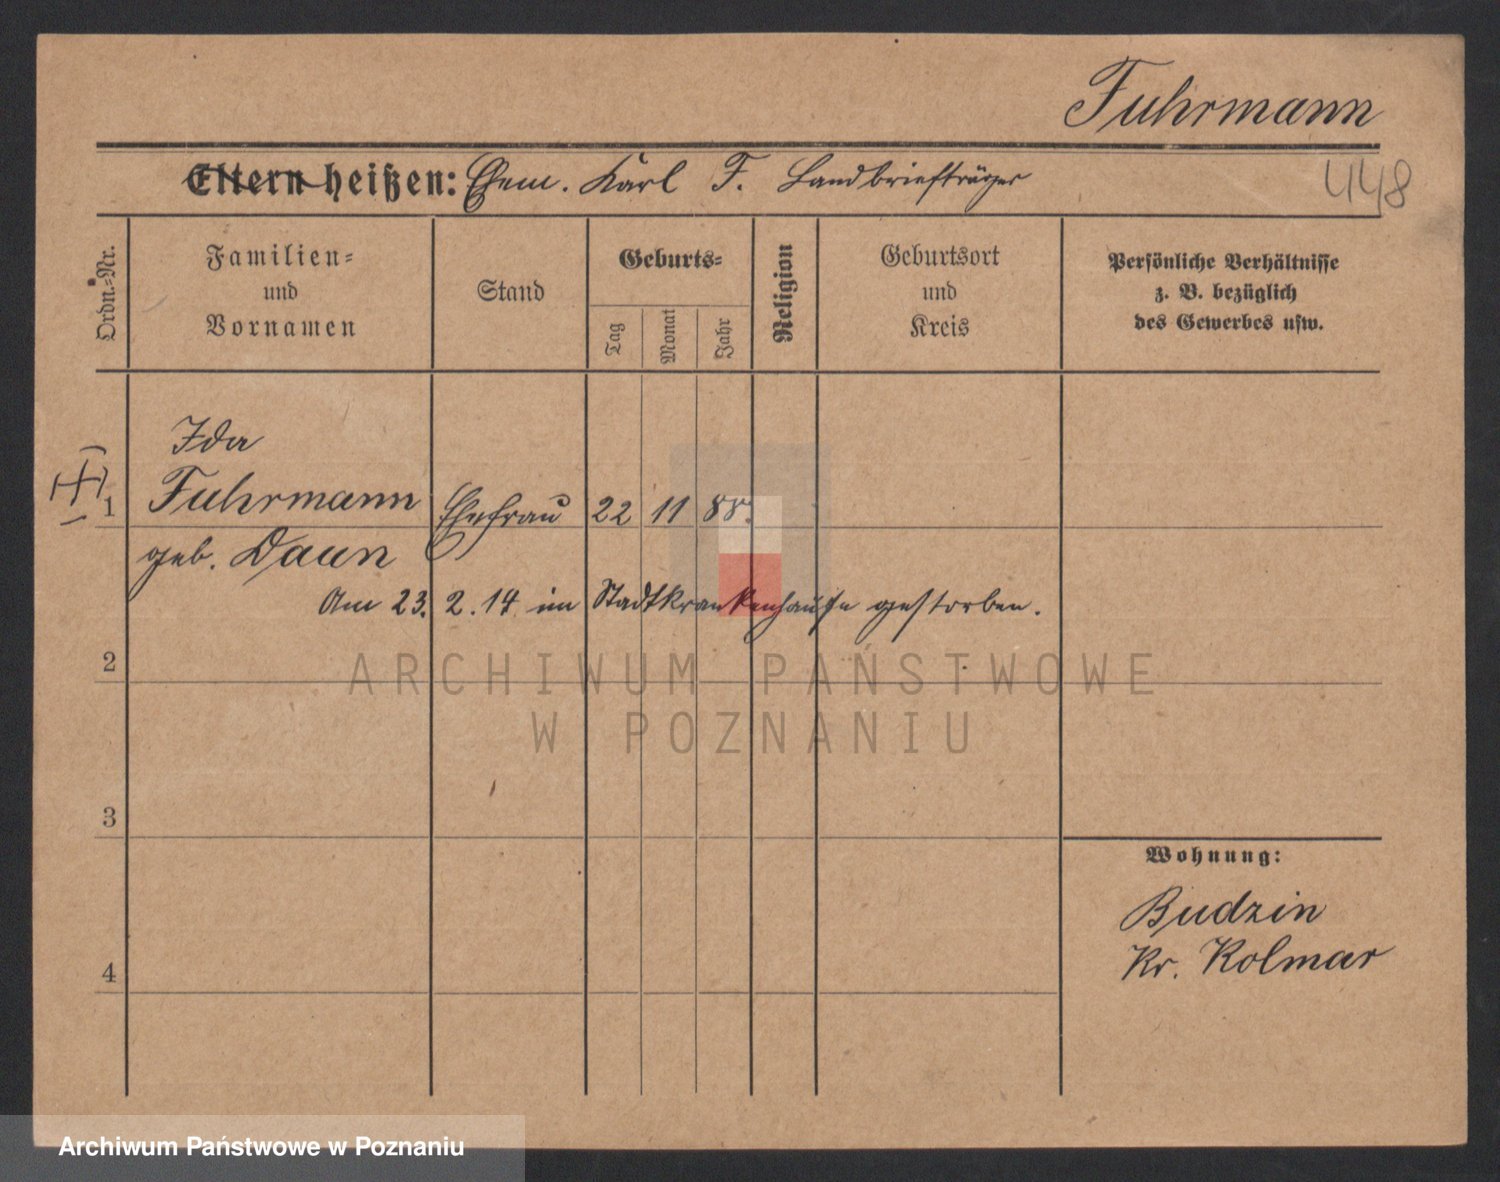 Fuhrmann
Eltern heißen: Ehem. Karl F. Landbriefträger
448
Ordn.-Nr.
Familien-
und
Vornamen
Stand
Geburts-
Tag
Monat
Jahr
Religion
Geburtsort
und
Kreis
Persönliche Verhältnisse
z. B. bezüglich
des Gewerbes usw.
Ida
1 Fuhrmann Ehefrau 22 11 88.
geb. Daun
Am 23. 2. 14 im Stadtkrankenhause gestorben.
2
ARCHIWUM PAŃSTWOWE
W POZNANIU
3
Wohnung:
Budzin
Kr. Kolmar
4
Archiwum Państwowe w Poznaniu